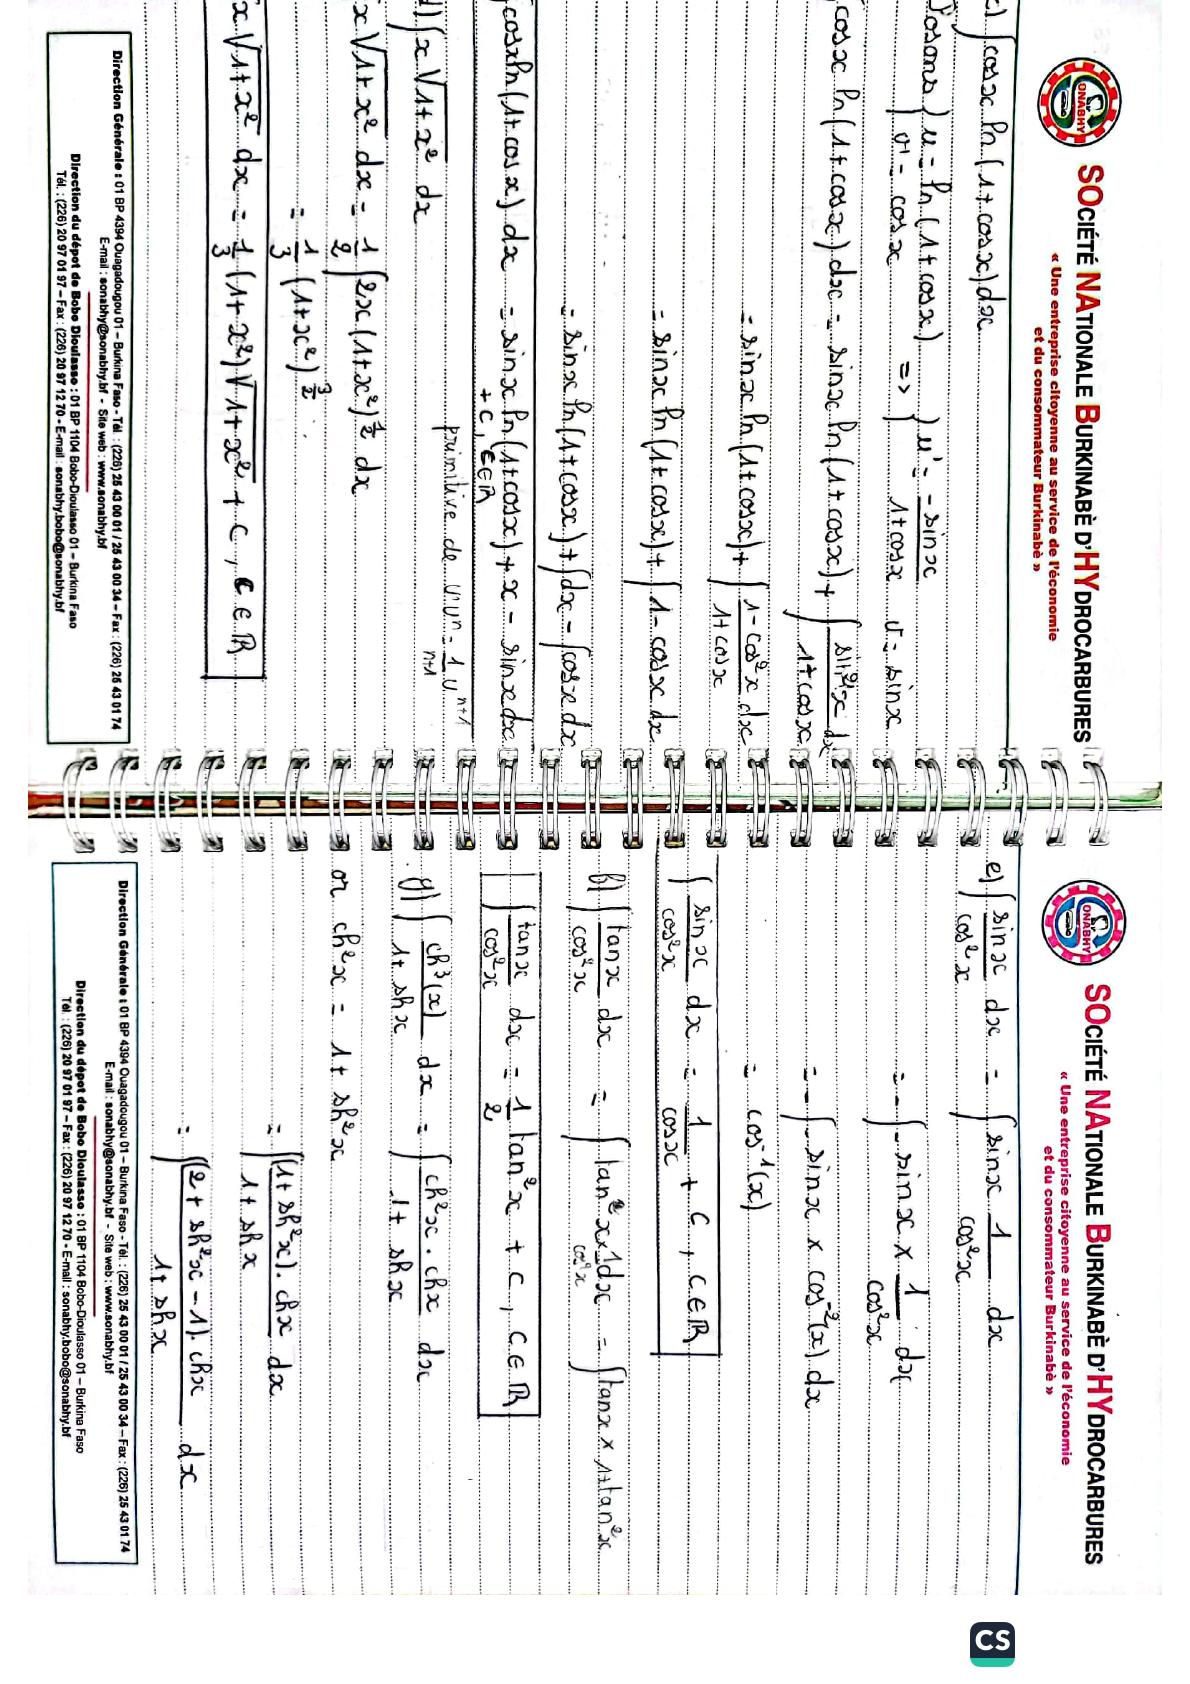 SOCIÉTÉ NATIONALE BURKINABÈ D'HYDROCARBURES
« Une entreprise citoyenne au service de l'économie
et du consommateur Burkinabè »
SONABHY
c) ∫cosx ln(1+cosx)dx
Posons { u = ln(1+cosx) => { u' = -sinx / 1+cosx
v' = cosx v = sinx
cosx ln(1+cosx)dx = sinx ln(1+cosx) + ∫ sin²x / 1+cosx dx
= sinx ln(1+cosx) + ∫ 1-cos²x / 1+cosx dx
= sinx ln(1+cosx) + ∫ 1-cosx dx
= sinx ln(1+cosx) + ∫dx - ∫cosx dx
∫cosx ln(1+cosx) dx = sinx ln(1+cosx) + x - sinx dx
+ c, c∈ℝ
d) ∫x√1+x² dx primitive de u'uⁿ = 1/n+1 uⁿ⁺¹
x√1+x² dx = 1/2 ∫2x(1+x²)^½ dx
= 1/3 (1+x²)^3/2
x√1+x² dx = 1/3 (1+x²)√1+x² + c, c∈ℝ
Direction Générale : 01 BP 4394 Ouagadougou 01 – Burkina Faso - Tél : (226) 25 43 00 01 / 25 43 00 34 – Fax : (226) 25 43 01 74
E-mail : sonabhy@sonabhy.bf - Site web : www.sonabhy.bf
Direction du dépot de Bobo Dioulasso : 01 BP 1104 Bobo-Dioulasso 01 – Burkina Faso
Tél. : (226) 20 97 01 97 – Fax : (226) 20 97 12 70 - E-mail : sonabhy.bobo@sonabhy.bf
SOCIÉTÉ NATIONALE BURKINABÈ D'HYDROCARBURES
« Une entreprise citoyenne au service de l'économie
et du consommateur Burkinabè »
SONABHY
e) ∫ sinx / cos²x dx = ∫ sinx 1 / cos²x dx
= -∫ -sinx × 1 / cos²x dx
= -∫ -sinx × cos⁻²(x) dx
= cos⁻¹(x)
∫ sinx / cos²x dx = 1 / cosx + c, c∈ℝ
f) ∫ tanx / cos²x dx = ∫ tan²x × 1 / cos²x dx = ∫ tanx × 1+tan²x
∫ tanx / cos²x dx = 1/2 tan²x + c, c∈ℝ
g) ∫ ch³(x) / 1+shx dx = ∫ ch²x · chx / 1+shx dx
or ch²x = 1+sh²x
= ∫ (1+sh²x) · chx / 1+shx dx
= ∫ (2+sh²x-1) · chx / 1+shx dx
Direction Générale : 01 BP 4394 Ouagadougou 01 – Burkina Faso - Tél. : (226) 25 43 00 01 / 25 43 00 34 – Fax : (226) 25 43 01 74
E-mail : sonabhy@sonabhy.bf - Site web : www.sonabhy.bf
Direction du dépot de Bobo Dioulasso : 01 BP 1104 Bobo-Dioulasso 01 – Burkina Faso
Tél. : (226) 20 97 01 97 – Fax : (226) 20 97 12 70 - E-mail : sonabhy.bobo@sonabhy.bf
CS